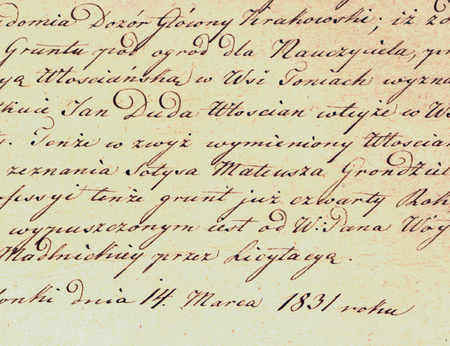 domia Dozór Głowny Krakowski; iż zo
Gruntu pod ogród dla Nauczyciela, pr
yą Włosciańską w Wsi Toniach wyzna
kuie Jan Duda Włoscian wteyże w W
Tenże w zwyż wymieniony Włoscian
zeznania Sołtysa Mateusza Grondziel
ofissyi tenże grunt już czwarty Rok
wypuszczonym iest od W: Pana Wóy
Modlnickiey przez Licytacyą.
onki dnia 14. Marca 1831 roku